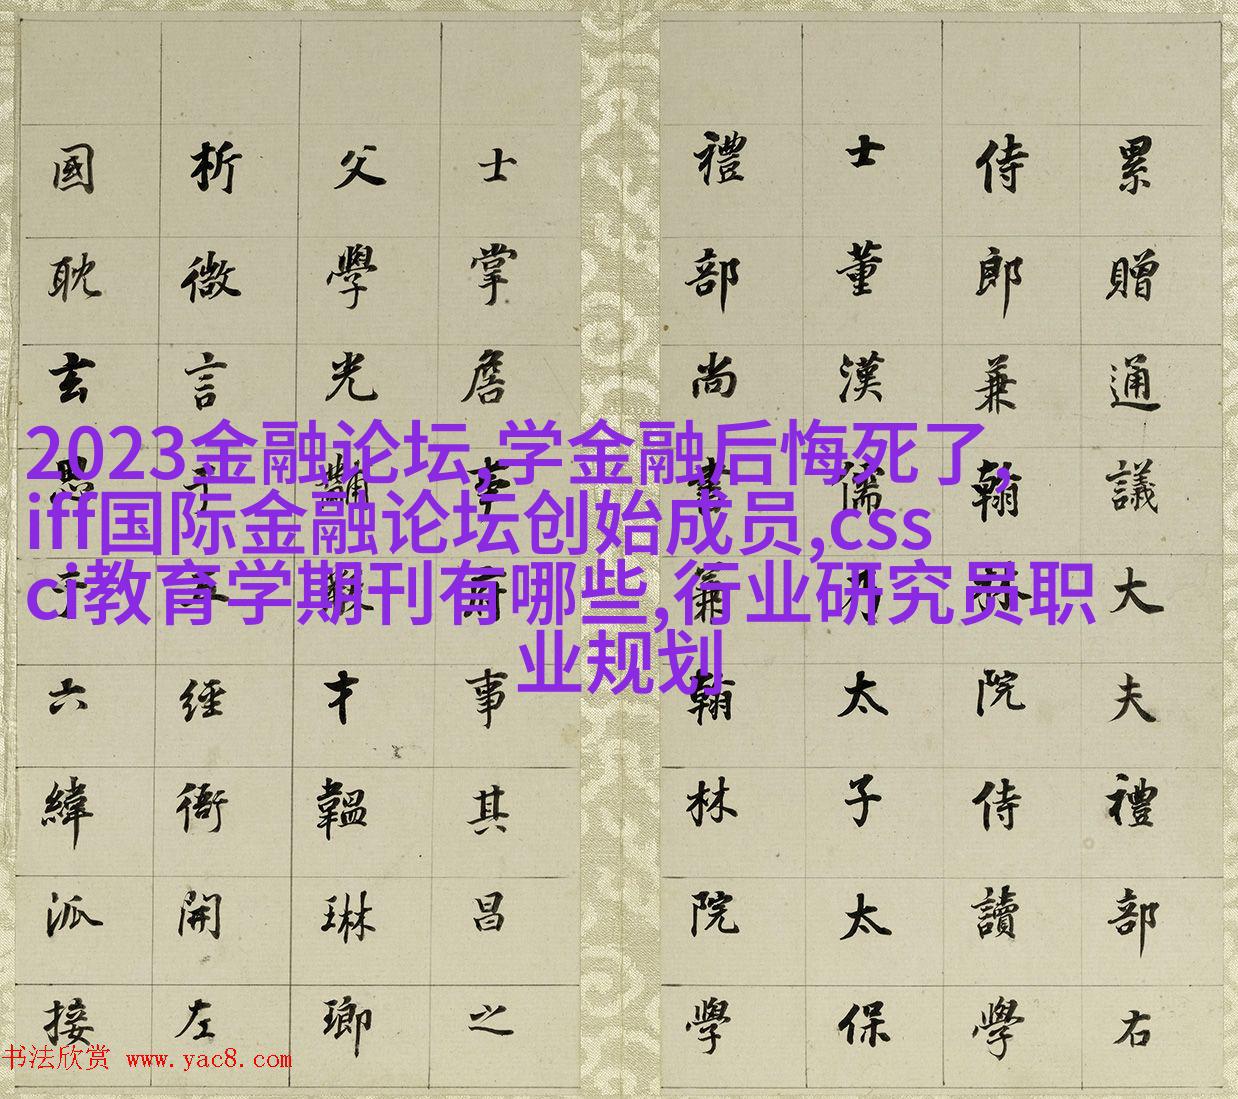 累贈通議大夫禮部右
侍郎兼翰林院侍讀學
士董漢儒乃太子太保
禮部尚書兼翰林院學
士掌詹事府事其昌之
父學光黼黻才韞琳瑯
析微言于五經衙開左
國耽玄思于六緯派接
2023金融论坛,学金融后悔死了,
iff国际金融论坛创始成员,css
ci教育学期刊有哪些,行业研究员职
业规划
书法欣赏 www.yac8.com